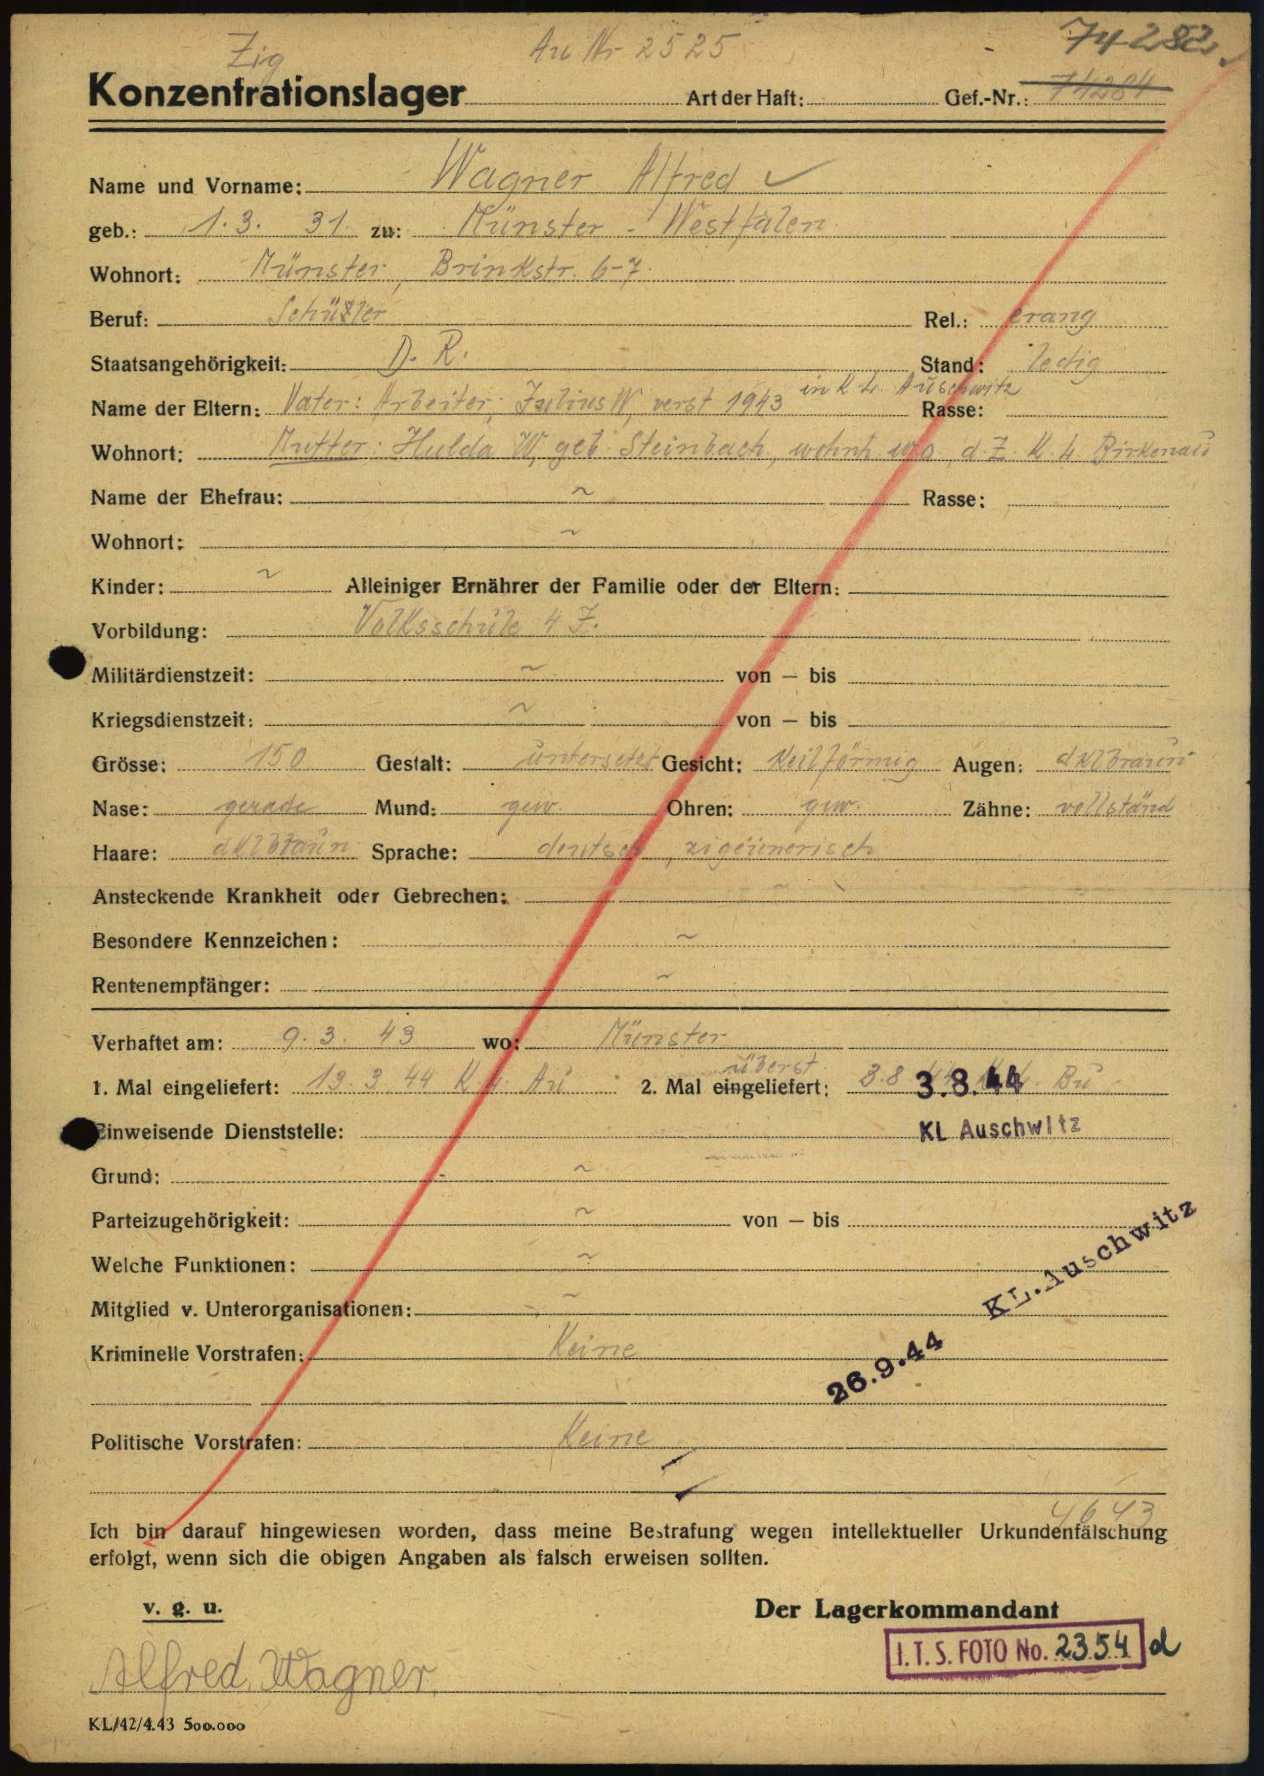 Zig Au Nr 2525 74282
Konzentrationslager Art der Haft: Gef.-Nr.: 74284
Name und Vorname: Wagner Alfred
geb.: 1.3. 31 zu: Münster - Westfalen
Wohnort: Münster, Brinkstr. 6-7.
Beruf: Schüler Rel.: evang
Staatsangehörigkeit: D. R. Stand: ledig
in K. L. Auschwitz
Name der Eltern: Vater: Arbeiter, Julius W, verst 1943 Rasse:
Wohnort: Mutter: Hulda W, geb. Steinbach, wohnh. d. Z. K. L. Birkenau
Name der Ehefrau: ~ Rasse:
Wohnort: ~
Kinder: ~ Alleiniger Ernährer der Familie oder der Eltern:
Vorbildung: Volksschule 4 J.
Militärdienstzeit: ~ von — bis
Kriegsdienstzeit: ~ von — bis
Grösse: 150 Gestalt: untersetzt Gesicht: keilförmig Augen: dklbraun
Nase: gerade Mund: gew. Ohren: gew. Zähne: vollständ
Haare: dklbraun Sprache: deutsch, zigeunerisch
Ansteckende Krankheit oder Gebrechen: ~
Besondere Kennzeichen: ~
Rentenempfänger: ~
Verhaftet am: 9. 3. 43 wo: Münster
überst.
1. Mal eingeliefert: 13. 3. 44 K. L. Au 2. Mal eingeliefert: 3.8.44 K. L. Bu
3.8.44
Einweisende Dienststelle: KL Auschwitz
Grund: ~
Parteizugehörigkeit: ~ von — bis
Welche Funktionen: ~
KL. Auschwitz
Mitglied v. Unterorganisationen: ~
Kriminelle Vorstrafen: Keine
26.9.44
Politische Vorstrafen: Keine
4643
Ich bin darauf hingewiesen worden, dass meine Bestrafung wegen intellektueller Urkundenfälschung
erfolgt, wenn sich die obigen Angaben als falsch erweisen sollten.
v. g. u. Der Lagerkommandant
I. T. S. FOTO No. 2354 d
Alfred Wagner
KL/42/4.43 500.000